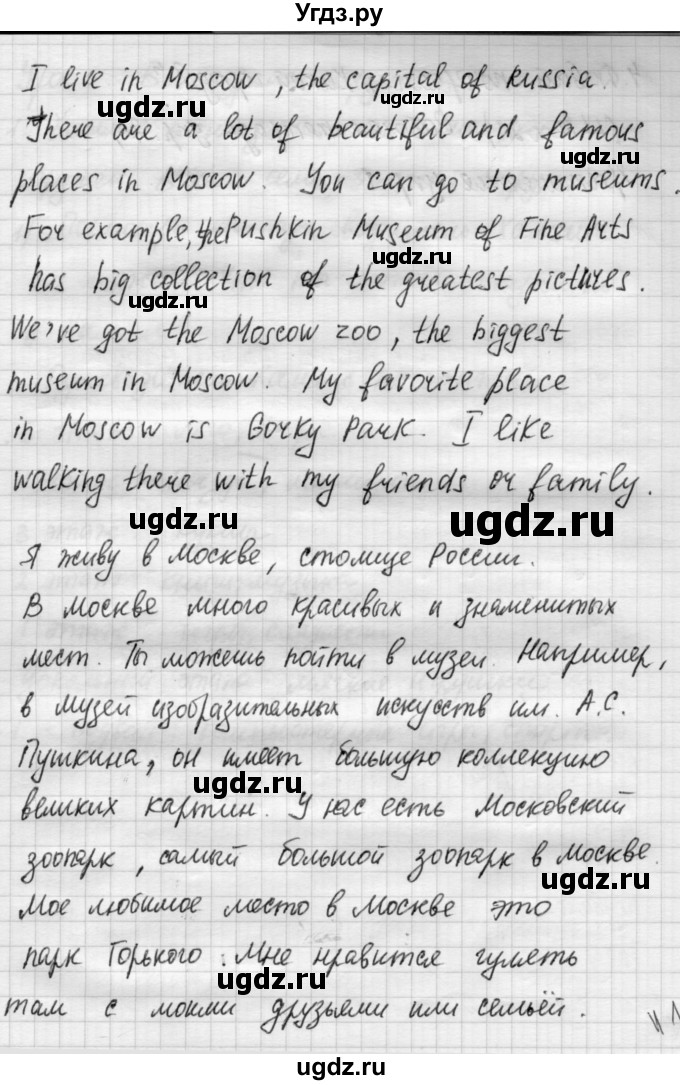 Угдз.ру
I live in Moscow, the capital of Russia.
There are a lot of beautiful and famous
places in Moscow. You can go to museums.
For example, the Pushkin Museum of Fine Arts
has big collection of the greatest pictures.
We've got the Moscow zoo, the biggest
museum in Moscow. My favorite place
in Moscow is Gorky Park. I like
walking there with my friends or family.
Я живу в Москве, столице России.
В Москве много красивых и знаменитых
мест. Ты можешь пойти в музеи. Например,
в музей изобразительных искусств им. А.С.
Пушкина, он имеет большую коллекцию
великих картин. У нас есть Московский
зоопарк, самый большой зоопарк в Москве.
Мое любимое место в Москве это
парк Горького. Мне нравится гулять
там с моими друзьями или семьёй.
ugdz.ru
ugdz.ru
ugdz.ru
ugdz.ru
ugdz.ru
ugdz.ru
ugdz.ru
ugdz.ru
ugdz.ru
ugdz.ru
ugdz.ru